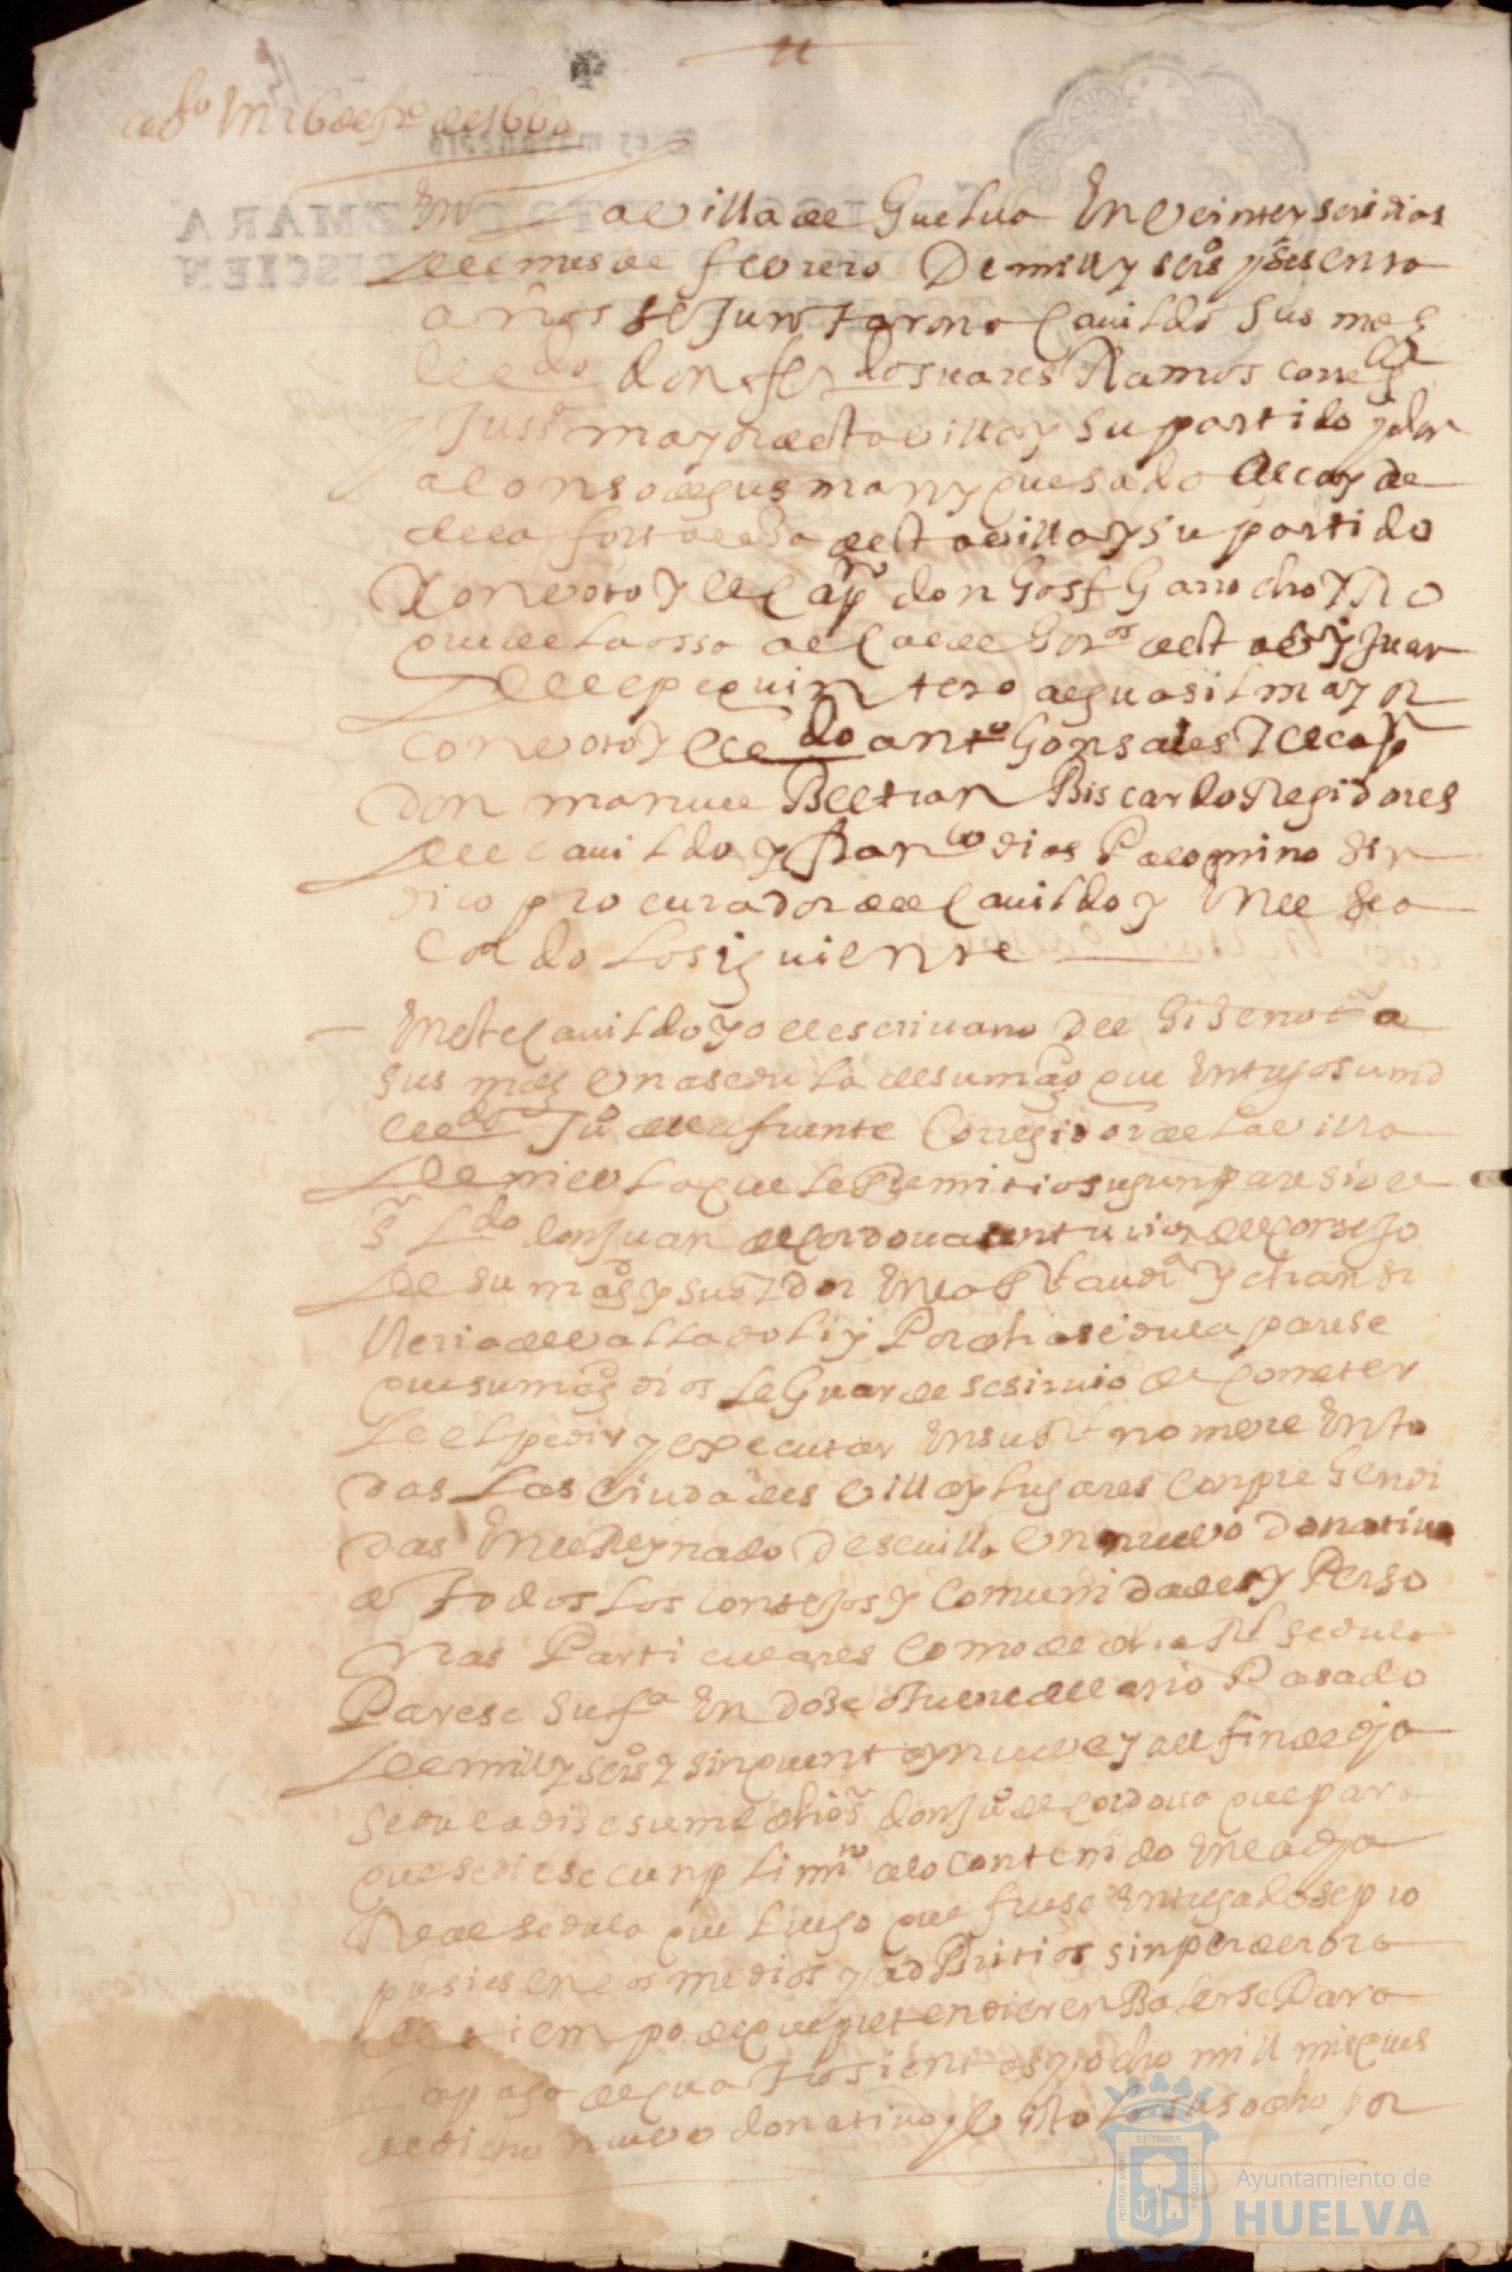 cabdo En 26 de fro de 1660
En La villa de Guelva En veinte y seis dias
del mes de febrero De mill y seis.os y sesenta
años se Juntaron a Cavildo sus mds
el Ldo don fer.do suares Ramos corre.or
y Juss.a mayor desta villa y su partido y don
alonso de gusman y quesado alcayde
de la fortalesa desta villa y su partido
con voto y el Capn don Gosf Garrocho y Ro
que de La ossa alcalde hor.os desta va y Juan
del pe quintero alguasil mayor
con voto y el Ldo anto Gonsales y el capn
don manuel Beltran Biscardo Regidores
del cavildo y fran.co dias Palomino sin
dico procurador del Cavildo y En el se a
cordo Lo siguiente
En este Cavildo yo el escrivano del hise notoa
sus mds vna sedula de su magd que Entrego su md
el Ldo Ju.o de la fuente Corregidor de La villa
de niebla que Le Remitio segun paresio el
Sr Ldo don Juan de Cordova senturion del Consejo
de su magd y su oydor En la Rl audi.a y chansi
lleria de valladoli y Por dha sedula parese
que su magd dios Le Guarde se siruio de Cometer
Le el pedir y executar En su Rl nombre En to
das Las Ciudades villas y Lugares Conprehendi
das En el Reynado De sevilla vn nuevo Donativo
a todos Los consejos y Comunidades y Perso
nas Particulares Como de dha Rl sedula
Parese su fa En dose otubre del año Pasado
de mill y seis.os y sinquenta y nueve y al fin de dha
sedula dise su md dho Sr don Ju.o de Cordova que para
que se diese cunplim.to a lo contenido En la dha
Real sedula que Luego que fuese Entregado se pro
pusiesen los medios y adbitrios sin perder ora
de tiempo de que pretendieren Balerse Para
La paga de quatrosientos y ocho mill mrs que es
el dicho nuevo donativo y visto Lo suso dho por
Ayuntamiento de
HUELVA